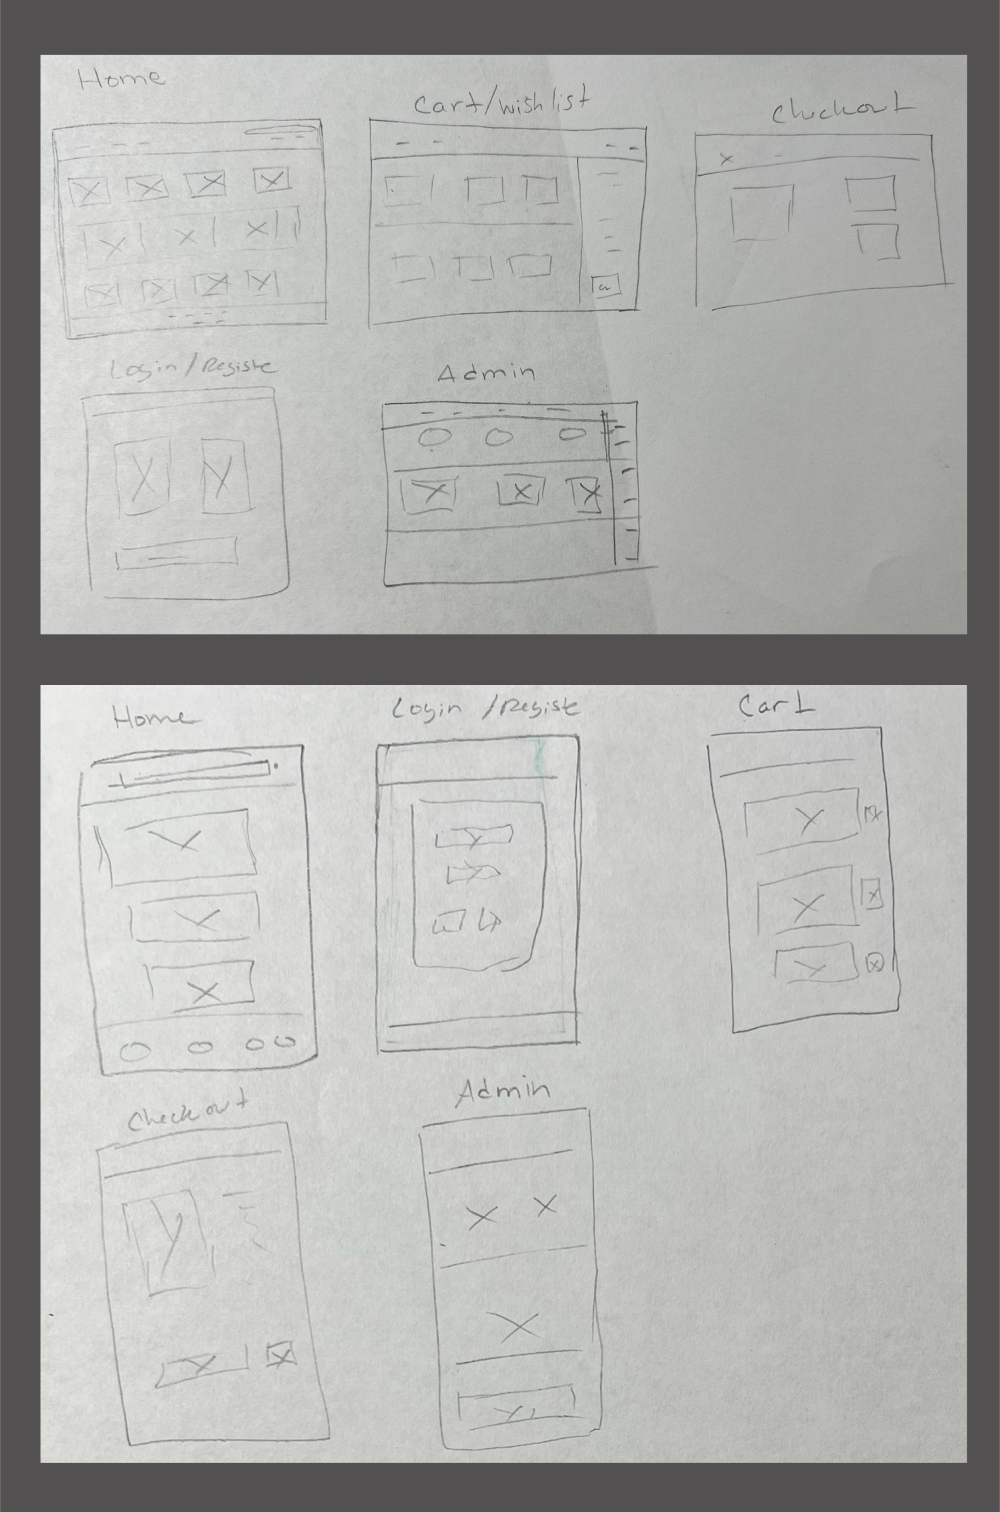 Home
Cart/wish list
Checkout
Login/Registe
Admin
Home
Login /Registe
Cart
Checkout
Admin